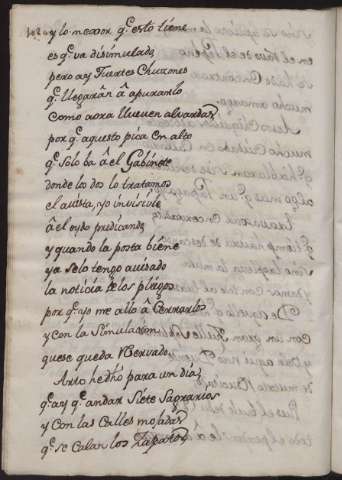 y lo mexor q.e esto tiene
es q.e va disimulado,
pero ay fuertes chuzones
q.e llegarán â apurarlo
como aora llueven alvardas
por q.e aquesto pica en alto
q.e solo ba â el Gabinete
donde los dos lo tratamos
el avista, yo invisivle
â el oydo predicando,
y quando la posta biene
ya se lo tengo avisado
la noticia de los pliegos
por q.e yo me allo â Cerrarlos
y con la simulacion
quese queda reservado,
Arto hecho para un dia,
q.e ay q.e andar siete sagrarios
y con las calles mojadas
q.e se calan los Zapatos,